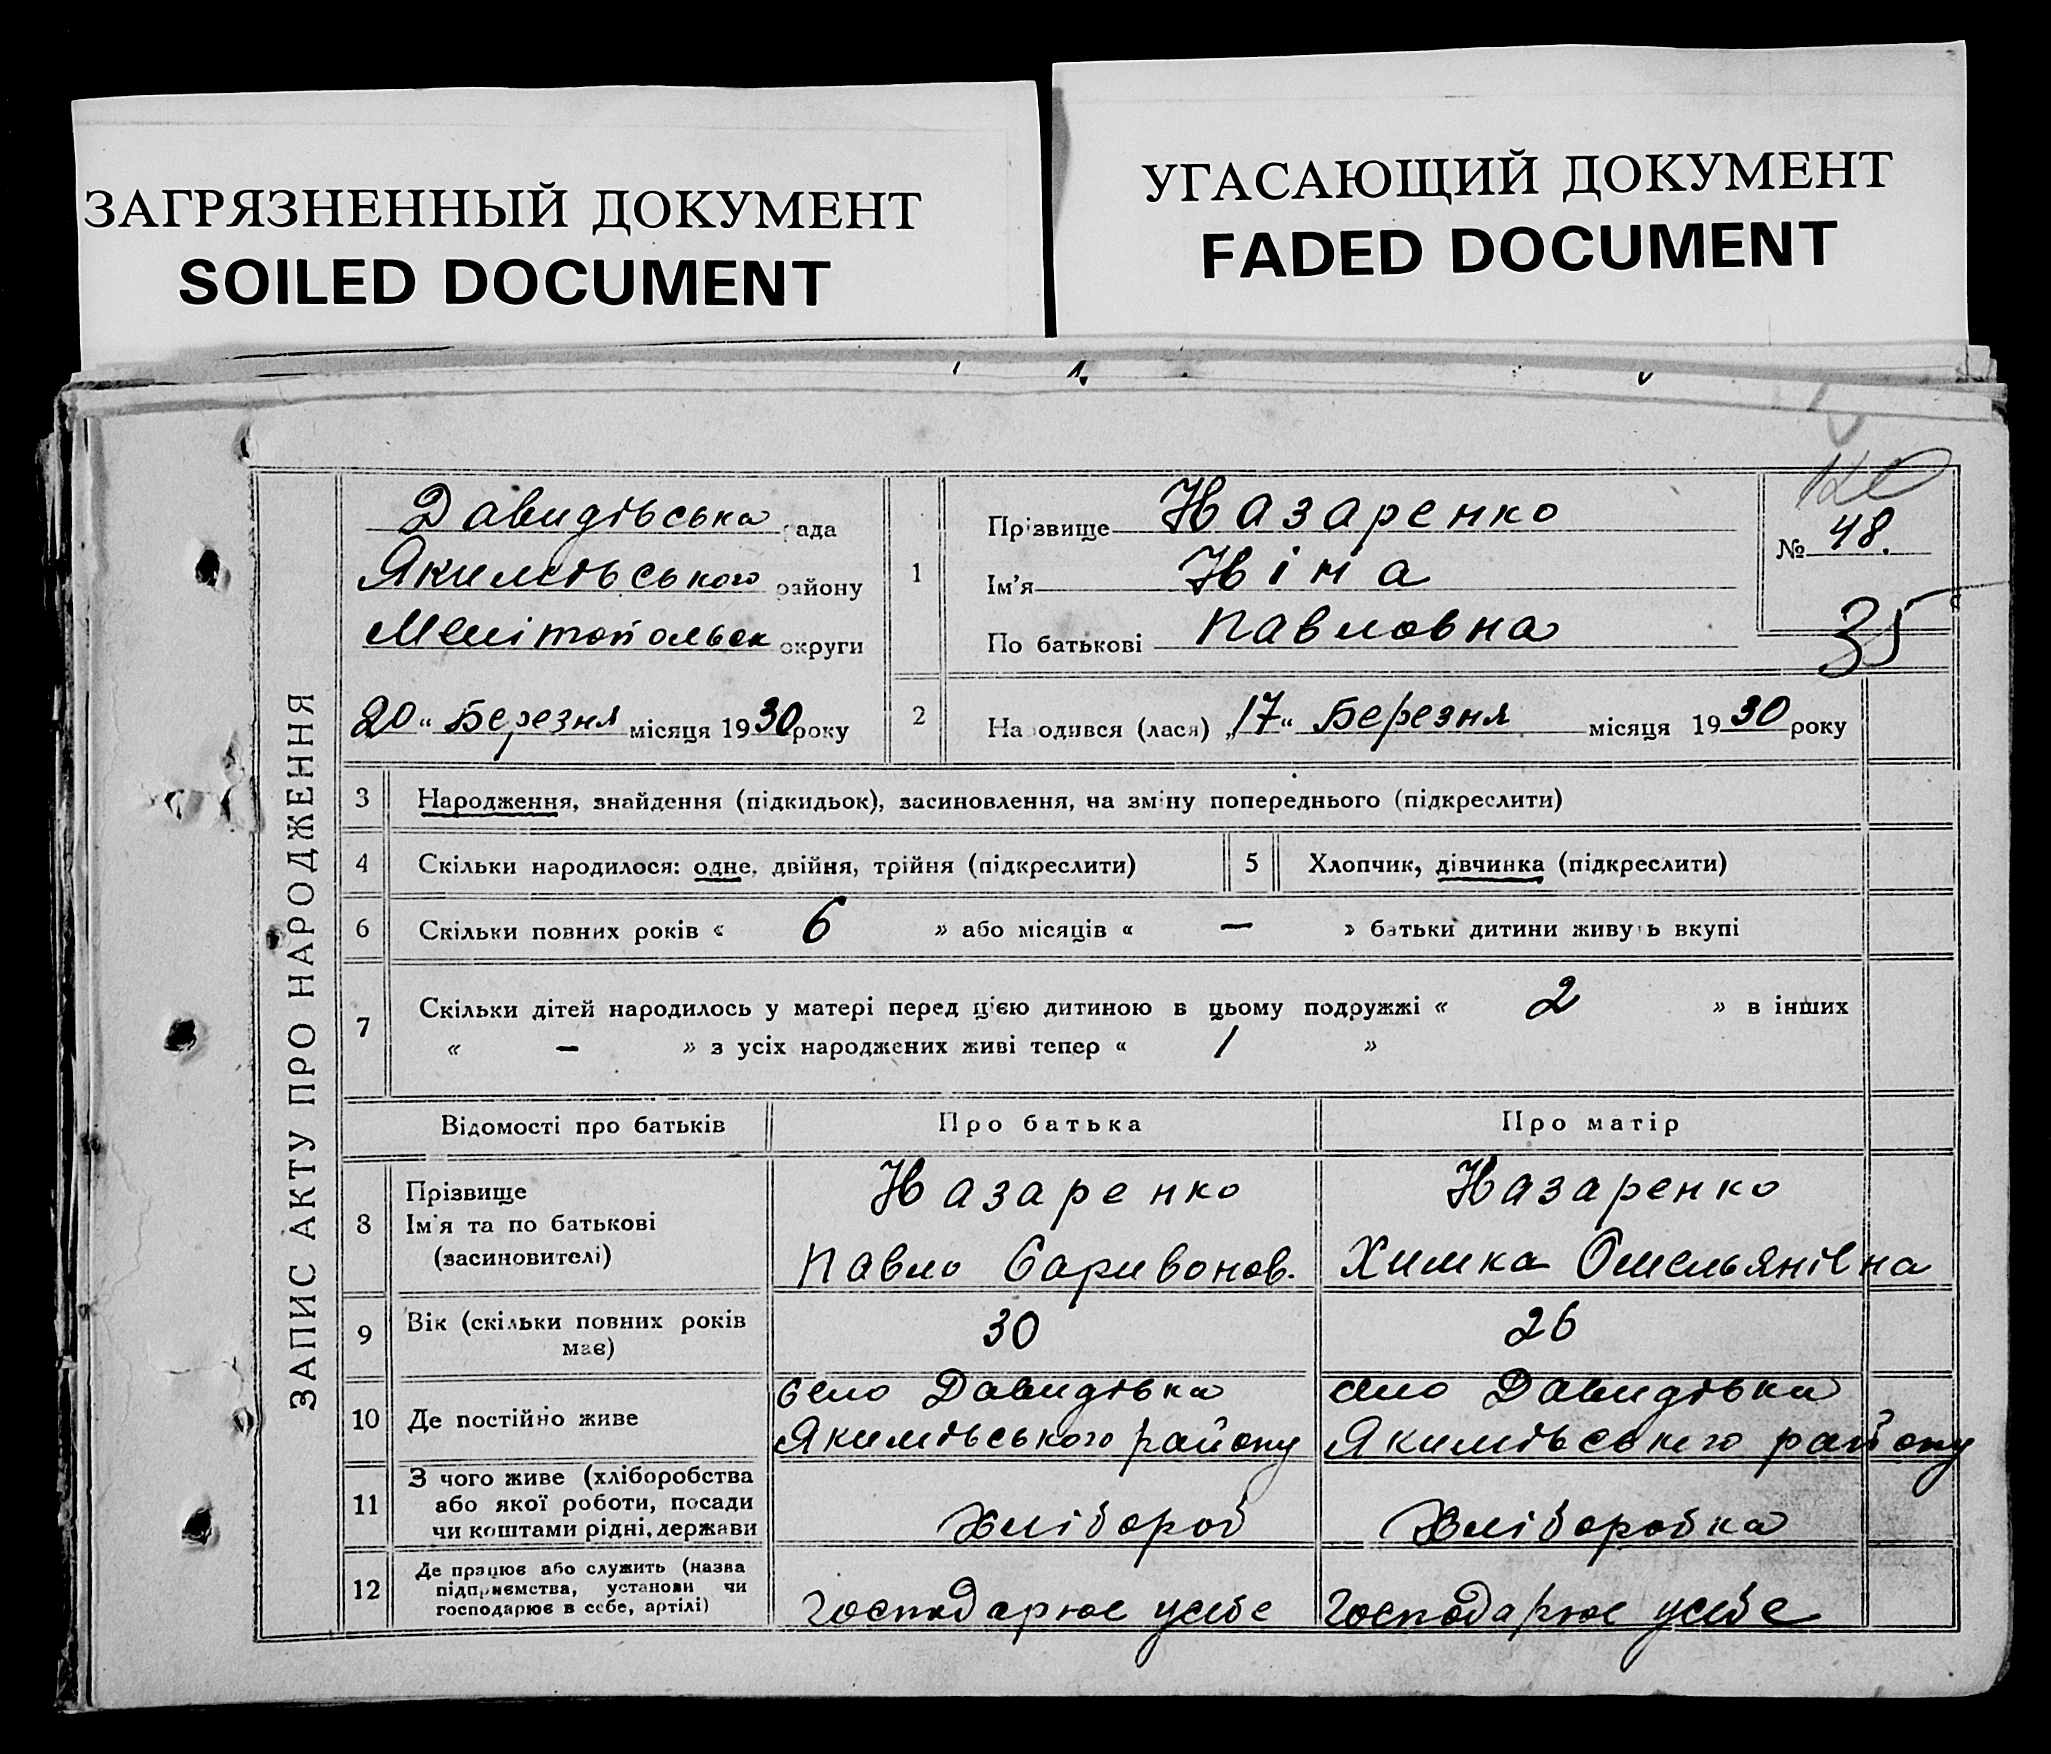 ЗАГРЯЗНЕННЫЙ ДОКУМЕНТ
SOILED DOCUMENT
УГАСАЮЩИЙ ДОКУМЕНТ
FADED DOCUMENT
ЗАПИС АКТУ ПРО НАРОДЖЕННЯ
Давидівська рада
Якимівського району
Мелітопольск округи
20 " Березня місяця 1930 року
1
Прізвище Назаренко
Ім'я Ніна
По батькові Павловна
120
№ 48.
35
2
Народився (лася) „17" Березня місяця 1930 року
3 Народження, знайдення (підкидьок), засиновлення, на зміну попереднього (підкреслити)
4 Скільки народилося: одне, двійня, трійня (підкреслити)
5 Хлопчик, дівчинка (підкреслити)
6 Скільки повних років « 6 » або місяців « — » батьки дитини живуть вкупі
7 Скільки дітей народилось у матері перед цією дитиною в цьому подружжі « 2 » в інших
« — » з усіх народжених живі тепер « 1 »
Відомості про батьків Про батька Про матір
8 Прізвище
Ім'я та по батькові
(засиновителі)
Назаренко
Павло Саривонов.
Назаренко
Химка Омельянівна
9 Вік (скільки повних років
має)
30
26
10 Де постійно живе
село Давидівка
Якимівського району
село Давидівка
Якимівського району
11 З чого живе (хліборобства
або якої роботи, посади
чи коштами рідні, держави
Хлібороб
Хліборобка
12 Де працює або служить (назва
підприємства, установи чи
господарює в себе, артілі)
Господарює усебе
Господарює усебе